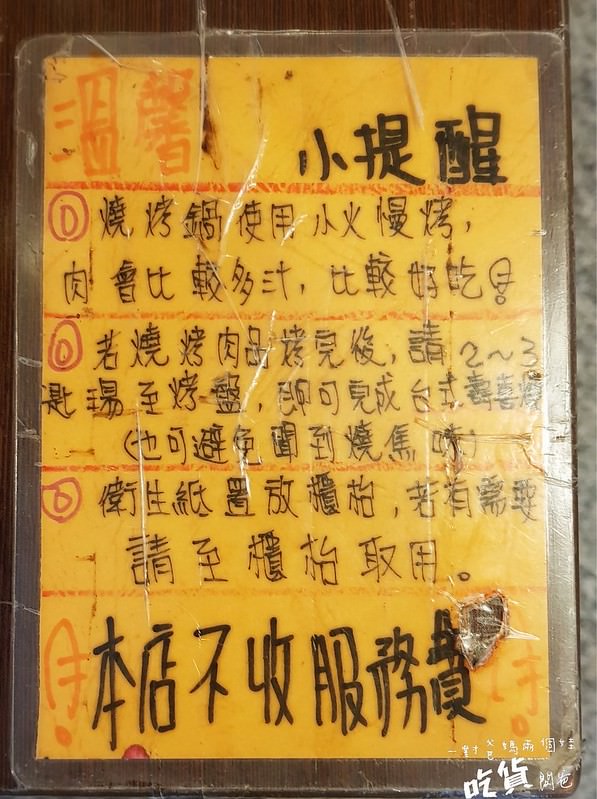 溫馨
小提醒
燒烤鍋使用小火慢烤,
肉會比較多汁,比較好吃
若燒烤肉品烤完後,請2~3
匙湯至烤盤,即可完成台式壽喜燒
(也可避免聞到燒焦味)
衛生紙置放櫃枱,若有需要
請至櫃枱取用。
本店不收服務費
一對爸媽兩個娃
吃貨